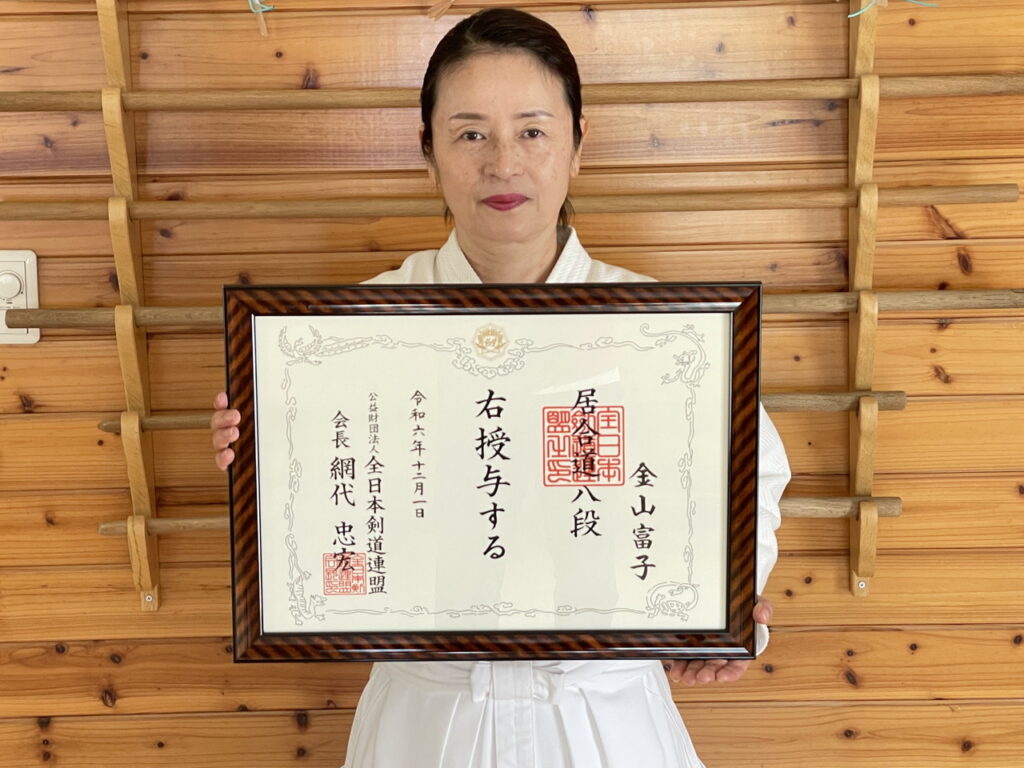 金山富子
居合道八段
右授与する
令和六年十二月一日
公益財団法人全日本剣道連盟
会長 網代忠宏